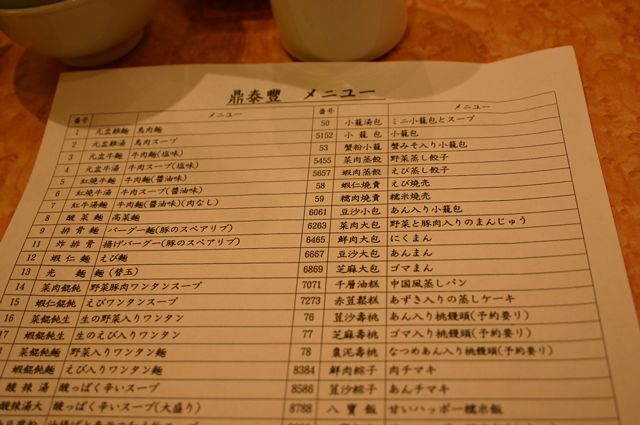 鼎泰豐 メニュー
番号 メニュー
1 元盅雞麺 鳥肉麺
2 元盅雞湯 鳥肉スープ
3 元盅牛麺 牛肉麺(塩味)
4 元盅牛湯 牛肉スープ(塩味)
5 紅燒牛麺 牛肉麺(醤油味)
6 紅燒牛湯 牛肉スープ(醤油味)
7 紅牛湯麺 牛肉麺(醤油味)(肉なし)
8 酸菜麺 高菜麺
9 排骨麺 バーグー麺(豚のスペアリブ)
11 炸排骨 揚げバーグー(豚のスペアリブ)
12 蝦仁麺 えび麺
13 光麺 麺(替玉)
14 菜肉餛飩 野菜豚肉ワンタンスープ
15 蝦仁餛飩 えびワンタンスープ
16 菜餛飩生 生の野菜入りワンタン
17 蝦餛飩生 生のえび入りワンタン
菜餛飩麺 野菜入りワンタン麺
蝦餛飩麺 えび入りワンタン麺
酸辣湯 酸っぱく辛いスープ
酸辣湯大 酸っぱく辛いスープ(大盛り)
番号 メニュー
50 小籠湯包 ミニ小籠包とスープ
5152 小籠包 小籠包
53 蟹粉小籠 蟹みそ入り小籠包
5455 菜肉蒸餃 野菜蒸し餃子
5657 蝦肉蒸餃 えび蒸し餃子
58 蝦仁燒賣 えび焼売
59 糯肉燒賣 糯米焼売
6061 豆沙小包 あん入り小籠包
6263 菜肉大包 野菜と豚肉入りのまんじゅう
6465 鮮肉大包 にくまん
6667 豆沙大包 あんまん
6869 芝麻大包 ゴマまん
7071 千層油糕 中国風蒸しパン
7273 赤荳鬆糕 あずき入りの蒸しケーキ
76 荳沙壽桃 あん入り桃饅頭(予約要り)
77 芝麻壽桃 ゴマ入り桃饅頭(予約要り)
78 棗泥壽桃 なつめあん入り桃饅頭(予約要り)
8384 鮮肉粽子 肉チマキ
8586 荳沙粽子 あんチマキ
8788 八寶飯 甘いハッポー糯米飯